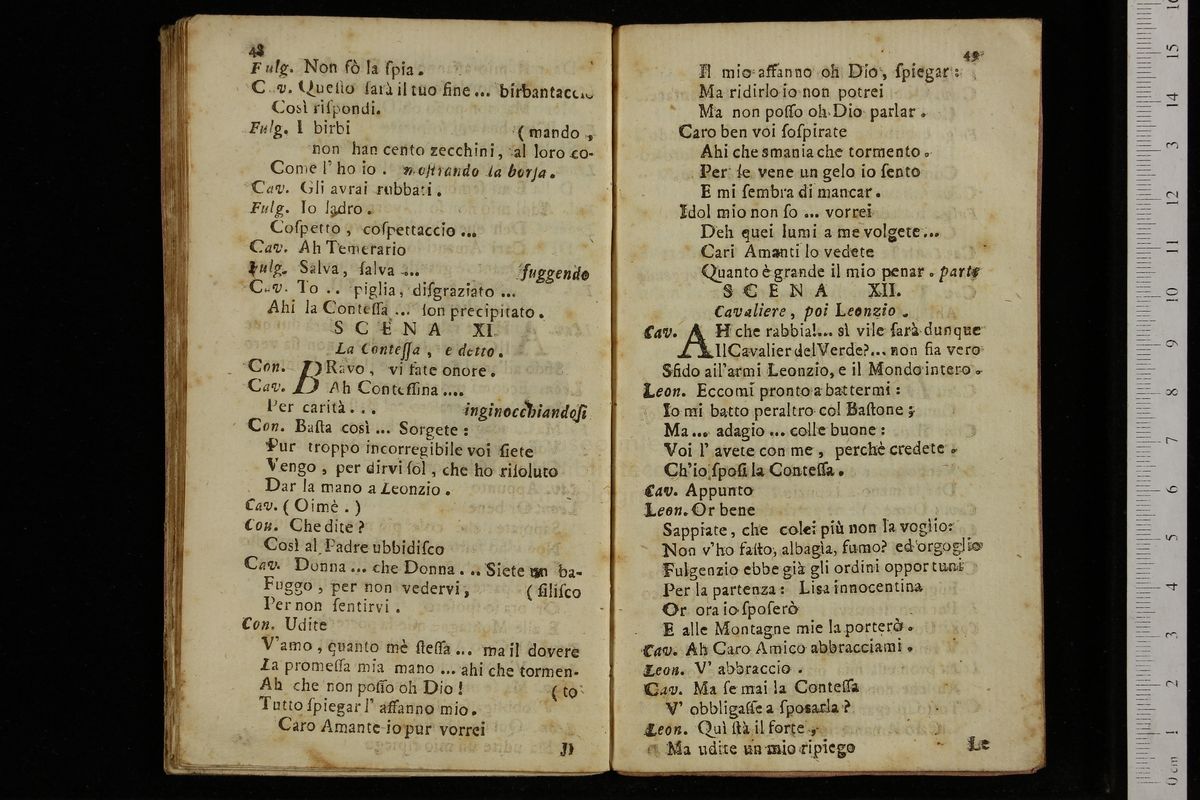 48
Fulg. Non fò la ſpia.
Cav. Queſto ſarà il tuo fine... birbantaccio
Così riſpondi.
Fulg. I birbi (mando,
non han cento zecchini, al loro co-
Come l'ho io. moſtrando la borſa.
Cav. Gli avrai rubbati.
Fulg. Io ladro.
Coſpetto, coſpettaccio...
Cav. Ah Temerario
Fulg. Salva, ſalva... fuggendo
Cav. To.. piglia, diſgraziato...
Ahi la Conteſſa... ſon precipitato.
SCENA XI.
La Conteſſa, e detto.
Con. BRavo, vi fate onore.
Cav. Ah Conteſſina....
Per carità... inginocchiandoſi
Con. Baſta così... Sorgete:
Pur troppo incorregibile voi ſiete
Vengo, per dirvi ſol, che ho riſoluto
Dar la mano a Leonzio.
Cav. (Oimè.)
Con. Che dite?
Così al Padre ubbidiſco
Cav. Donna... che Donna... Siete un ba-
Fuggo, per non vedervi, (ſiliſco
Per non ſentirvi.
Con. Udite
V'amo, quanto mè ſteſſa... ma il dovere
La promeſſa mia mano... ahi che tormen-
Ah che non poſſo oh Dio! (to
Tutto ſpiegar l'affanno mio.
Caro Amante io pur vorrei
Il
49
Il mio affanno oh Dio, ſpiegar:
Ma ridirlo io non potrei
Ma non poſſo oh Dio parlar.
Caro ben voi ſoſpirate
Ahi che smania che tormento.
Per le vene un gelo io ſento
E mi ſembra di mancar.
Idol mio non ſo... vorrei
Deh quei lumi a me volgete...
Cari Amanti lo vedete
Quanto è grande il mio penar. parte
SCENA XII.
Cavaliere, poi Leonzio.
Cav. AH che rabbia!... sì vile ſarà dunque
Il Cavalier del Verde?... non ſia vero
Sfido all'armi Leonzio, e il Mondo intero.
Leon. Eccomi pronto a battermi:
Io mi batto peraltro col Baſtone;
Ma... adagio... colle buone:
Voi l'avete con me, perchè credete.
Ch'io ſpoſi la Conteſſa.
Cav. Appunto
Leon. Or bene
Sappiate, che colei più non la voglio:
Non v'ho faſto, albagìa, fumo? ed orgoglio
Fulgenzio ebbe già gli ordini opportuni
Per la partenza: Lisa innocentina
Or ora io ſpoſerò
E alle Montagne mie la porterò.
Cav. Ah Caro Amico abbracciami.
Leon. V'abbraccio.
Cav. Ma ſe mai la Conteſſa
V'obbligaſſe a ſposarla?
Leon. Quì ſtà il forte,
Ma udite un mio ripiego
Le
0 cm 1 2 3 4 5 6 7 8 9 10 11 12 3 14 15 16